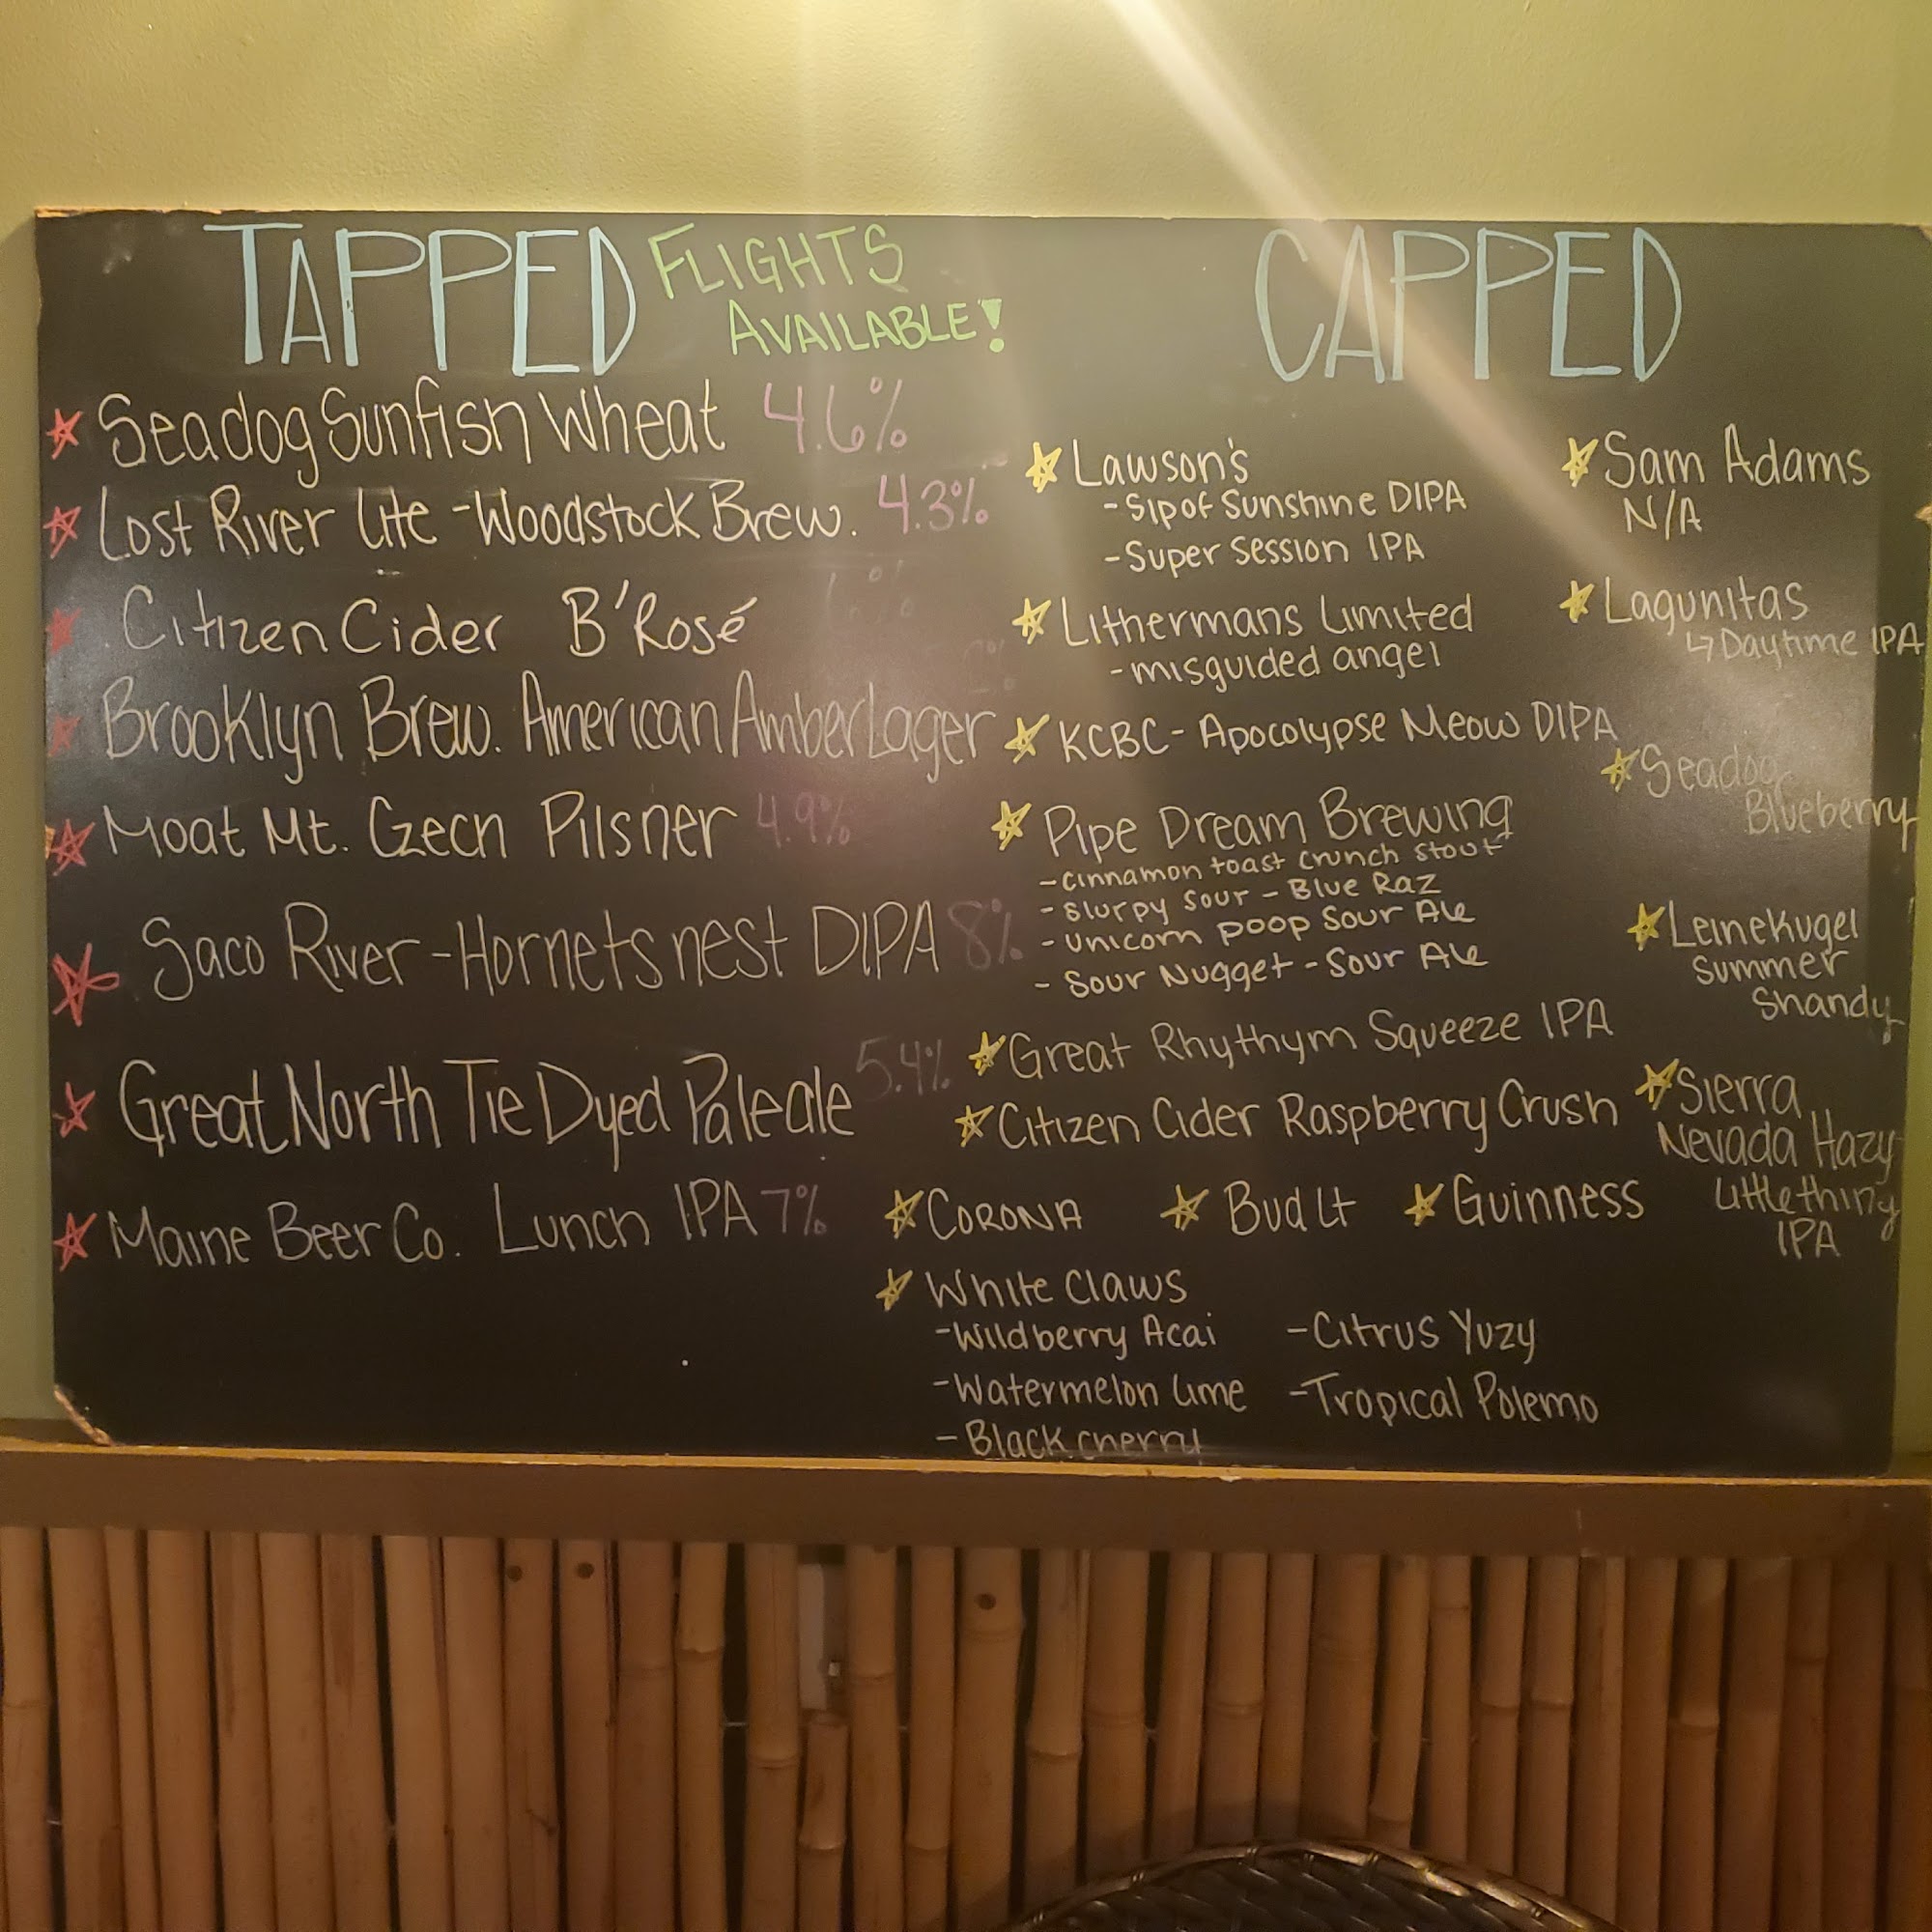 TAPPED FLIGHTS
AVAILABLE!
Seadog Sunfish Wheat 4.6%
Lost River Lite - Woodstock Brew. 4.3%
Citizen Cider B'Rosé
Brooklyn Brew. American Amber Lager
Moat Mt. Czech Pilsner 4.9%
Saco River - Hornets nest DIPA 8%
Great North Tie Dyed Pale ale 5.4%
Maine Beer Co. Lunch IPA 7%
CAPPED
Lawson's
- Sip of Sunshine DIPA
- Super Session IPA
Lithermans Limited
- misguided angel
KCBC - Apocolypse Meow DIPA
Pipe Dream Brewing
- cinnamon toast crunch stout
- slurpy sour - Blue Raz
- unicorn poop Sour Ale
- Sour Nugget - Sour Ale
Great Rhythym Squeeze IPA
Citizen Cider Raspberry Crush
Corona Bud Lt Guinness
White Claws
- Wildberry Acai - Citrus Yuzy
- Watermelon lime - Tropical Polemo
- Black cherry
Sam Adams
N/A
Lagunitas
↳ Daytime IPA
Seadog
Blueberry
Leinekugel
Summer
Shandy
Sierra
Nevada Hazy
Little thing
IPA